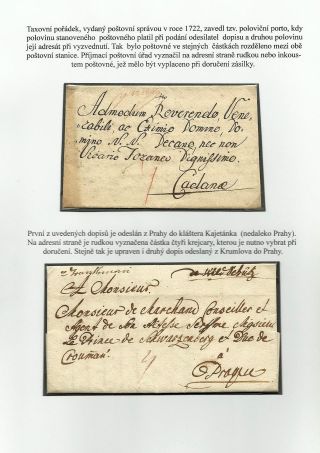 Taxovní pořádek, vydaný poštovní správou v roce 1722, zavedl tzv. poloviční porto, kdy
polovinu stanoveného poštovného platil při podání odesilatel dopisu a druhou polovinu
její adresát při vyzvednutí. Tak bylo poštovné ve stejných částkách rozděleno mezi obě
poštovní stanice. Přijímací poštovní úřad vyznačil na adresní straně rudkou nebo inkous-
tem poštovné, jež mělo být vyplaceno při doručení zásilky.
Admodum Reverendo, Vene,
rabili, ac Eximio Domino, Do,
mino N. N. Decano, nec non
Vicario Foraneo Dignissimo.
Cadanæ
První z uvedených dopisů je odeslán z Prahy do kláštera Kajetánka (nedaleko Prahy).
Na adresní straně je rudkou vyznačena částka čtyři krejcary, kterou je nutno vybrat při
doručení. Stejně tak je upraven i druhý dopis odeslaný z Krumlova do Prahy.
A Monsieur
Monsieur de Marchand Conseiller et
Agent de Son Altesse Monsieur
Le Prince de Schwarzenberg et Duc de
Croumau
à
Prague
4